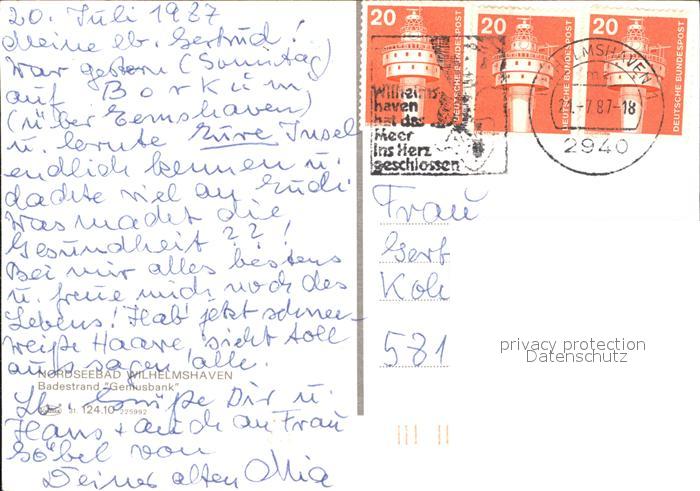 20. Juli 1987
Meine lb. Gertrud!
war gestern (Sonntag)
auf Borkum
(über Eemshaven)
u. lernte Eure Insel
endlich kennen u.
dachte viel an Euch!
was macht die
Gesundheit ??!
Bei mir alles bestens
u. freue mich noch des
Lebens! Hab' jetzt schnee-
weiße Haare, sieht toll
aus sagen alle.
NORDSEEBAD WILHELMSHAVEN
Badestrand "Geniusbank"
Lb. Grüße Dir u.
31. 124.10 225992
Hans + auch an Frau
Göbel von
Deiner alten Mia
20 DEUTSCHE BUNDESPOST
20 DEUTSCHE BUNDESPOST
20 DEUTSCHE BUNDESPOST
Wilhelms
haven
hat das
Meer
ins Herz
geschlossen
WILHELMSHAVEN 1
-7.87-18
2940
Frau
Gert
Koh
581
privacy protection
Datenschutz